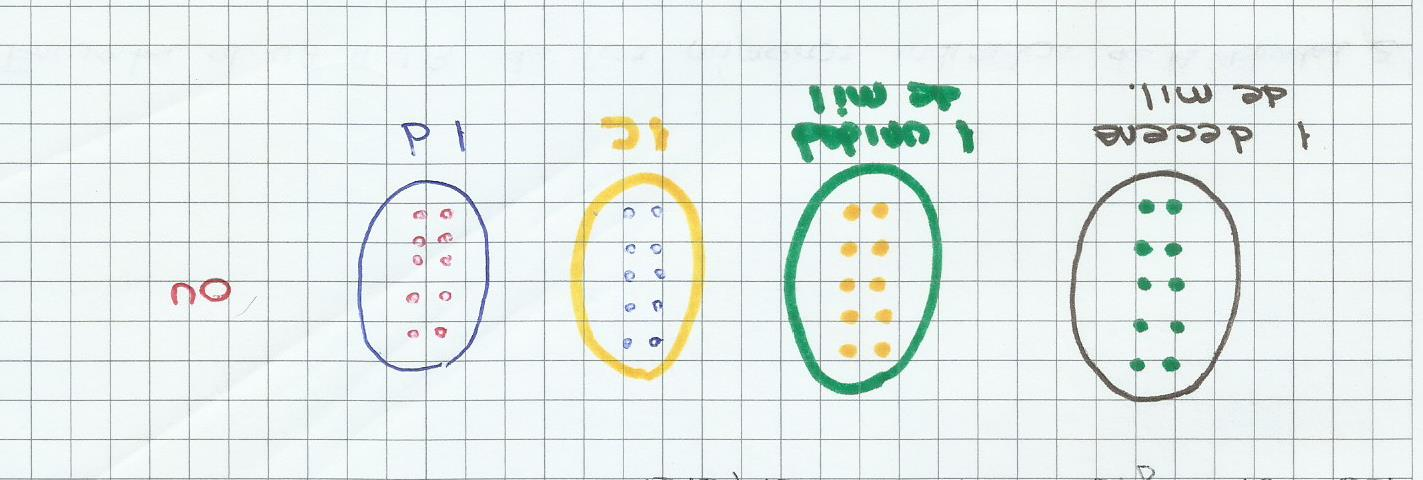 1 decena
de mil.
1 unidad
de mil
1C
1 d
Ou